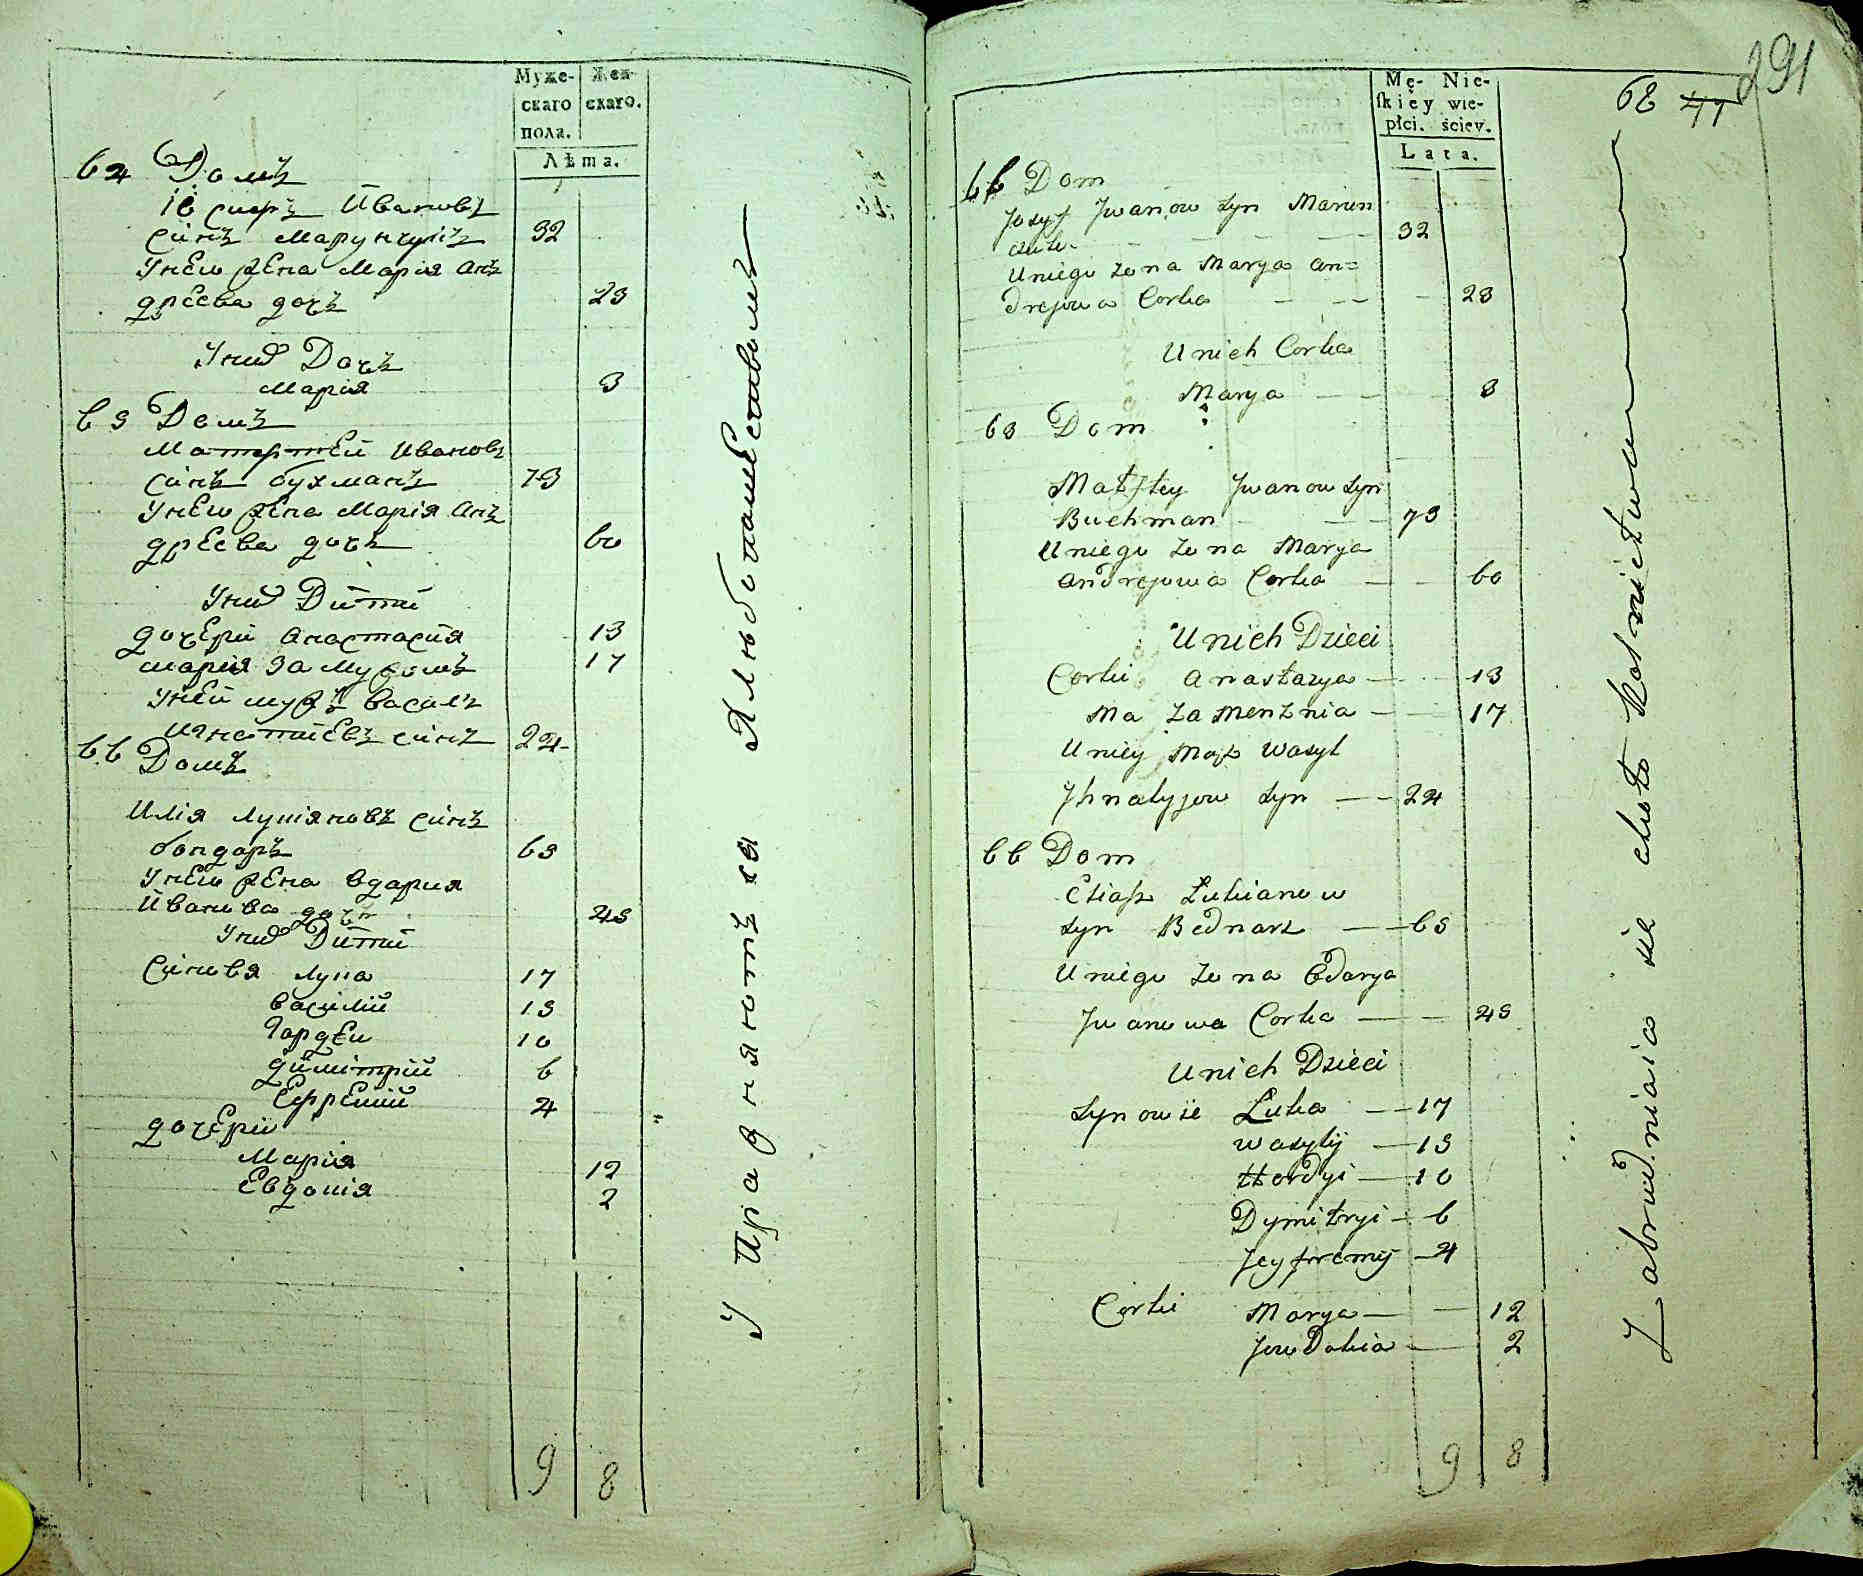 Муже-
скаго
пола.
Жен-
скаго.
Лѣта.
64 Домъ
Іѡсифъ Ивановъ
синъ Марунчукъ 32
Унеѡ жена Марія Ан
дрѣева дочъ 23
Унихъ Дочъ
Марія 3
65 Домъ
Матфтей Ивановъ
синъ бухманъ 73
Унеѡ жена Марія Ан
дреева дочъ 60
Унихъ Дити
дочери анастасия 13
мария замужомъ 17
Уней мужъ василъ
игнатиевъ синъ 24
66 Домъ
Илія лукіяновъ синъ
бондаръ 65
Унеѡ жена вдария
Иванова дочъ 45
Унихъ Дити
Синовя лука 17
василий 15
Гордеи 10
димітрий 6
Ефремий 4
дочерѝ
Мария 12
Евдокия 2
9 8
Упражняютъ ся Хлѣбопашествомъ
291
68 41
Mę-
skiey
płci.
Nie-
wie-
ściey.
Lata.
64 Dom
Josyf Jwanow Syn Marun
czuk 32
Uniego zona Marya An=
drejowa Corka 23
Unich Corka
Marya 3
65 Dom
Matftey Jwanow Syn
Buchman 73
Uniego zona Marya
Andrejowa Corka 60
Unich Dzieci
Corki Anastazya 13
Ma zamenznia 17
Uniey Mąż Wasyl
Jhnatyjow Syn 24
66 Dom
Eliasz Lukianow
Syn Bednarz 65
Uniego zona Wdarya
Jwanowa Corka 45
Unich Dzieci
Synowie Luka 17
Wasylij 15
Hordyi 10
Dymitryi 6
Jeyfremij 4
Corki Marya 12
Jewdokia 2
9 8
Zatrudniaia się